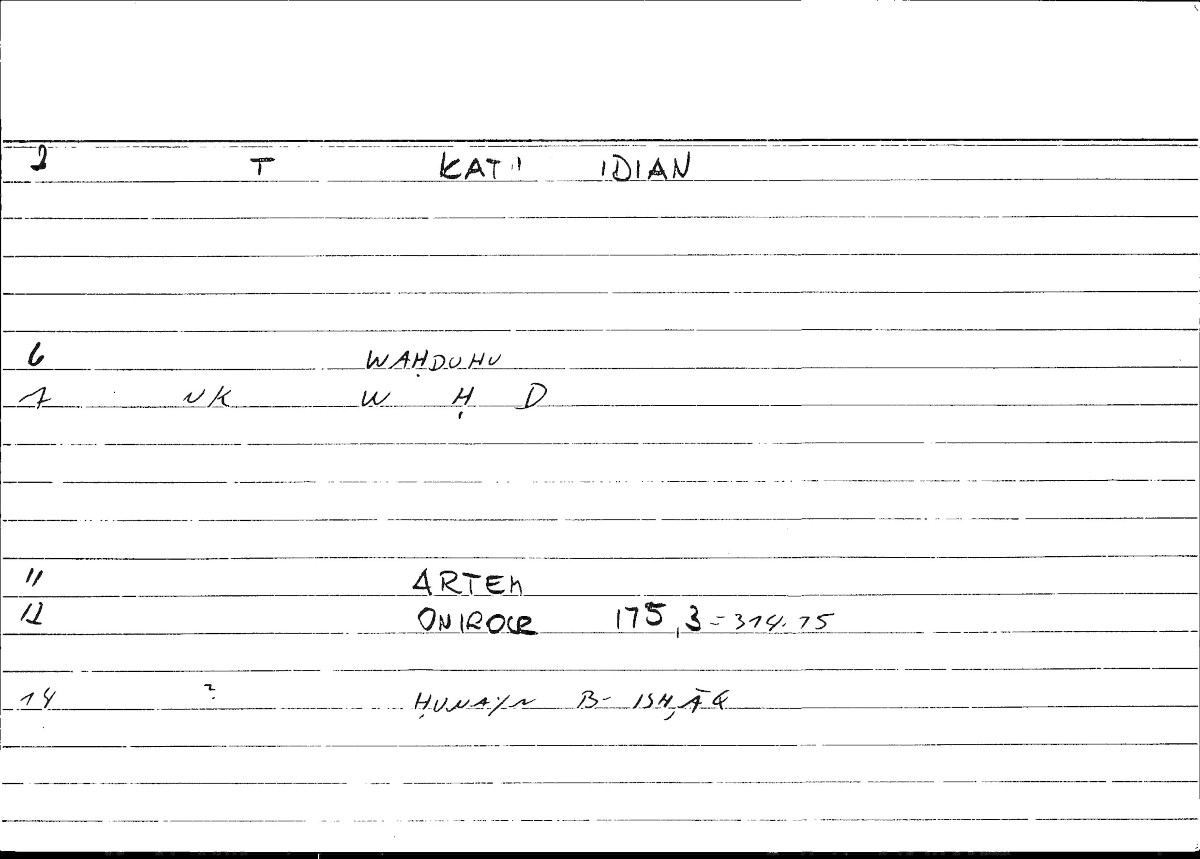 2 T KAT' IDIAN
6 WAḤDUHU
7 NK W Ḥ D
11 ARTEM
12 ONIROCR 175,3 = 314.15
14 ? ḤUNAYN B- ISḤĀQ